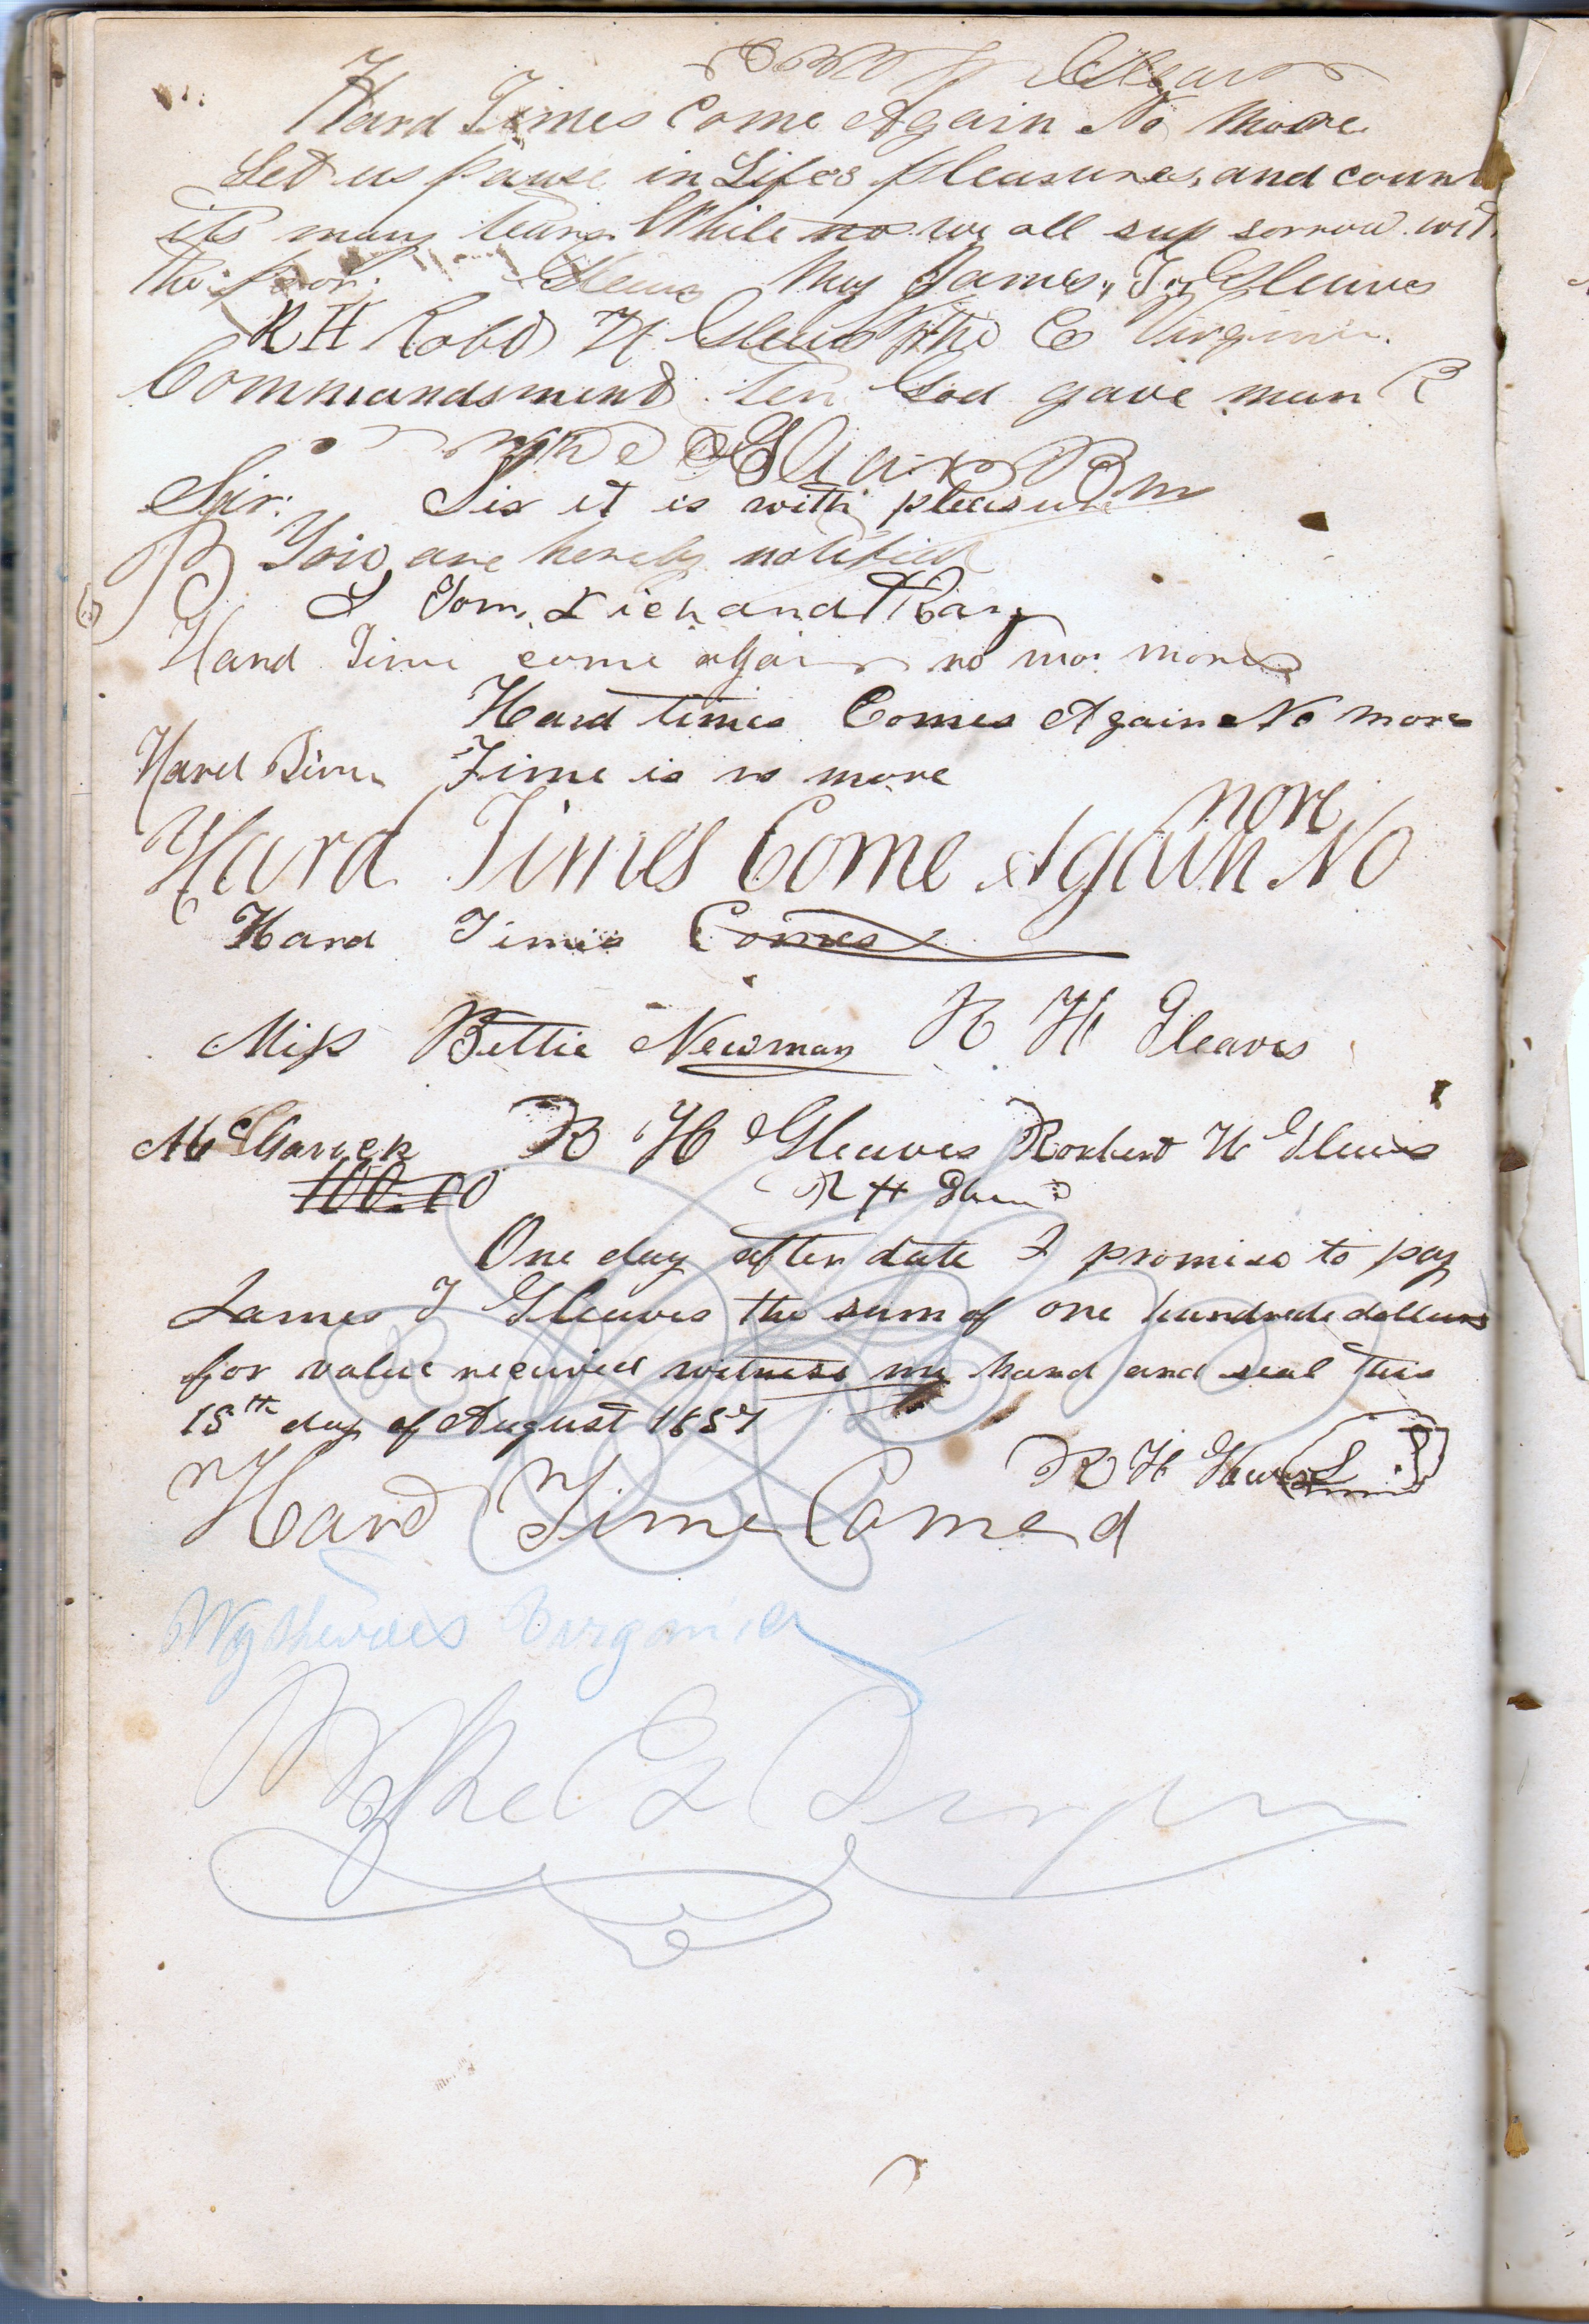 Hard Times Come Again No More
Let us pause in Lifes pleasures, and count
its many tears While no we all sup sorrow with
the poor. Gleaves My James, T, Gleaves
R H Robt H Gleaves Wythe C Virginia
Commandsment Ten God gave man R
Sir: Sir it is with pleasure
You are hereby notified
I Tom, Dick and Hary
Hard Time come again no mo more
Hard times Comes Again No more
Hard Time Time is no more
more
Hard Times Come Again No
Hard Times Comes
Miss Bettie Newman R H Gleaves
McGavock R H Gleaves Robert H Gleaves
100.00 R H
One day after date I promise to pay
James T Gleaves the sum of one hundred dollars
for value received witness my hand and seal this
15th day of August 1857
R H Gleaves L S
Hard Time Come d
Wythe Virgania
Wythe Co